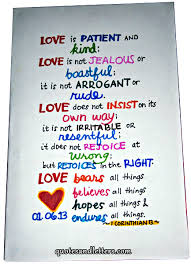 LOVE is PATIENT AND
kind;
LOVE is not JEALOUS OR
boastful;
it is not ARROGANT OR
rude.
LOVE does not INSIST ON its
own way;
it is not IRRITABLE OR
resentful;
it does not REJOICE at
wrong;
but REJOICES in the RIGHT.
LOVE bears all things,
believes all things
hopes all things &
01.06.13 endures all things.
1 CORINTHIANS 13
quotesandletters.com